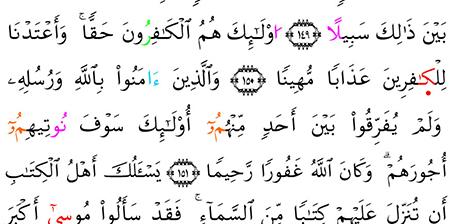 بَيْنَ ذَٰلِكَ سَبِيلًا ﴿١٤٩﴾ ا۟وْلَـٰٓئِكَ هُمُ ٱلْكَـٰفِرُونَ حَقًّا ۚ وَأَعْتَدْنَا
لِلْكَـٰفِرِينَ عَذَابًا مُّهِينًا ﴿١٥٠﴾ وَٱلَّذِينَ ءَامَنُوا۟ بِٱللَّهِ وَرُسُلِهِۦ
وَلَمْ يُفَرِّقُوا۟ بَيْنَ أَحَدٍ مِّنْهُمُۥٓ أُو۟لَـٰٓئِكَ سَوْفَ نُوتِيهِمُۥٓ
أُجُورَهُمْ ۗ وَكَانَ ٱللَّهُ غَفُورًا رَّحِيمًا ﴿١٥١﴾ يَسْـَٔلُكَ أَهْلُ ٱلْكِتَـٰبِ
أَن تُنَزِّلَ عَلَيْهِمْ كِتَـٰبًا مِّنَ ٱلسَّمَآءِ ۚ فَقَدْ سَأَلُوا۟ مُوسَىٰٓ أَكْبَرَ